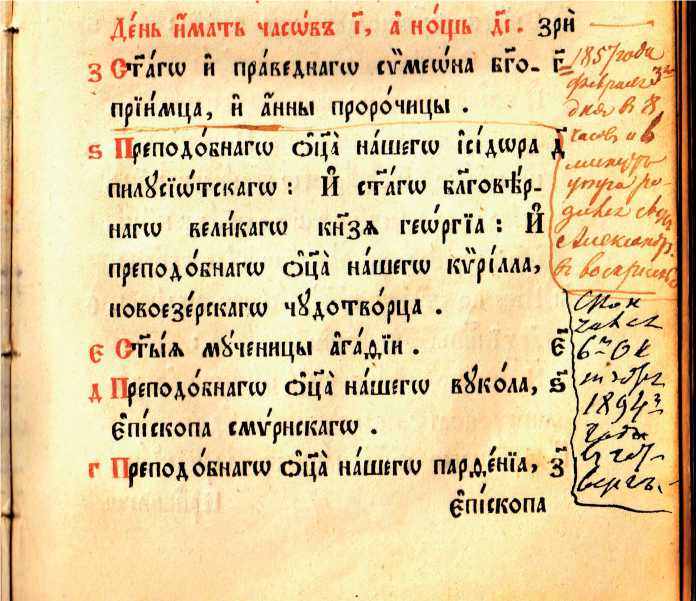 Де́нь и҆́мать часѡ́въ і҃, а҆ но́щь д҃і. зрѝ
з Ст҃а́гѡ и҆ пра́веднагѡ сѷмеѡ́на бг҃о- г҃
прїи́мца, и҆ а҆́нны проро́чицы.
ѕ Преподо́бнагѡ ѻ҆ц҃а̀ на́шегѡ і҆сі́дѡра д҃
пилꙋсїѡ́тскагѡ: И҆ ст҃а́гѡ бл҃говѣ́р-
нагѡ вели́кагѡ кн҃зѧ гео́ргїа: И҆
преподо́бнагѡ ѻ҆ц҃а̀ на́шегѡ кѷрі́лла,
новоезе́рскагѡ чꙋдотво́рца.
є Ст҃ы́ѧ мꙋ́ченицы а҆га́ѳїи. є҃
д Преподо́бнагѡ ѻ҆ц҃а̀ на́шегѡ вꙋко́ла, ѕ҃
є҆пі́скопа смѵ́рнскагѡ.
г Преподо́бнагѡ ѻ҆ц҃а̀ на́шегѡ парѳе́нїа, з҃
є҆пі́скопа
1857 года
февраля 3го
дня в 8
часов и 6
минутъ
утра ро-
дился сынъ
Александръ
въ воскрисень
Скон
чался
6го Ок
тября
1894го
года
въ чет-
вергъ.